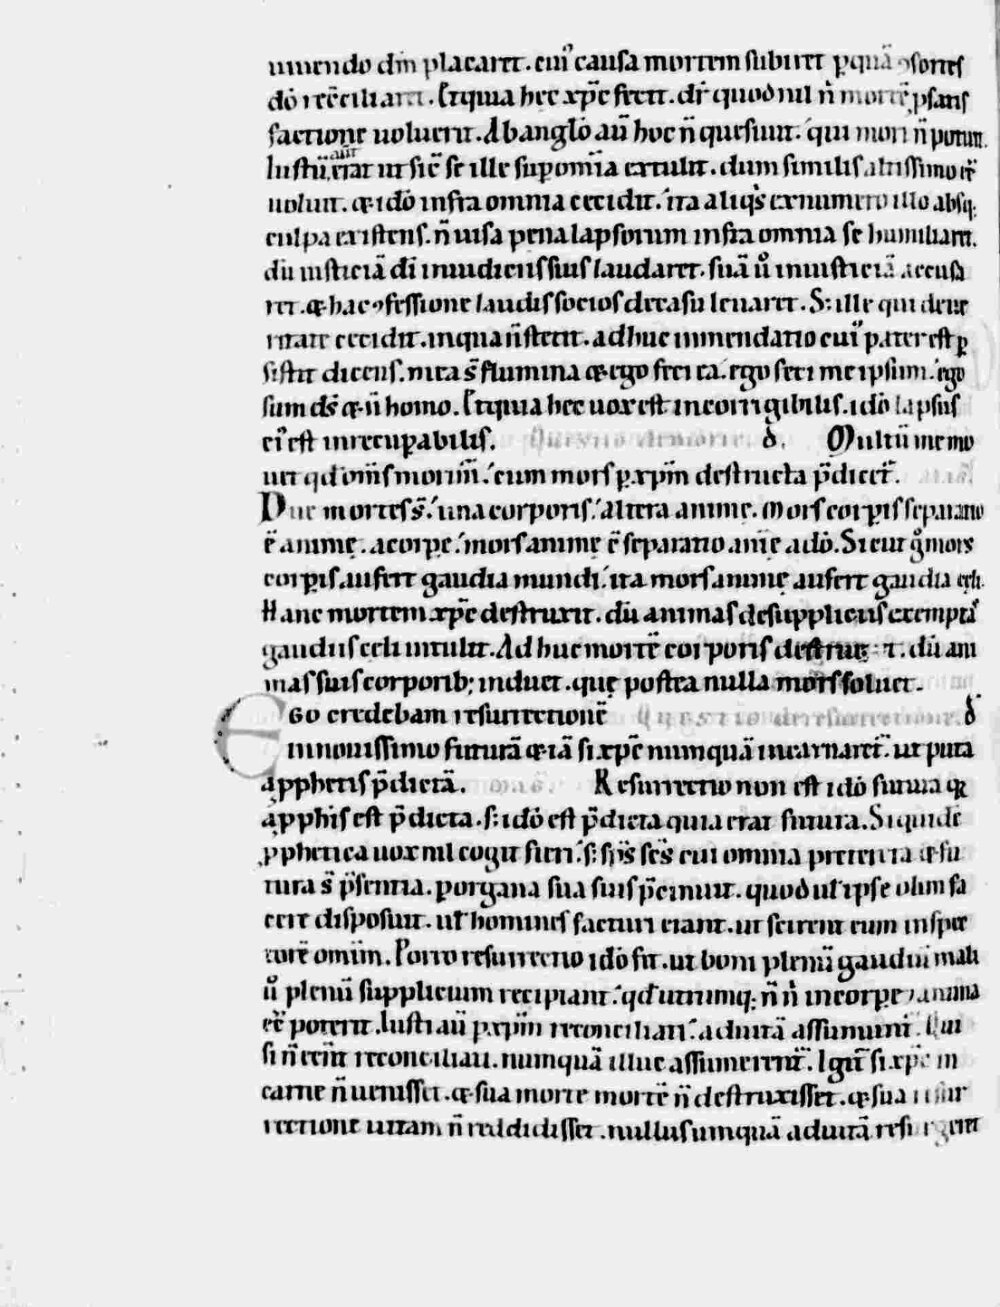 uiuendo dm̄ placaret. cui᾽ causa mortem subiret p̱quā ꝯsortes
dō recciliaret. Et quia hec xp̄c fecit. dr̄ quod nil n̄ mortē p̱sans
factione uoluerit. Ab anglō aū hoc n̄ quesiuit. qui mori n̄ potuit.
Iustū aūt erat ut sic̄ se ille sup omīa extulit. dum similis altissimo eē
uoluit. & idō infra omnia cecidit. ita aliq̇s ex numero illo absq;
culpa existens. n̄ uisa pena lapsorum infra omnia se humiliaret.
dū iusticiā dī in iudiciis suis laudaret. suā u̇ iniusticiā accusa
ret. & hac ꝯfessione laudis socios de casu leuaret. S; ille qui de ue
ritate cecidit. in qua n̄ stetit. adhuc in mendatio cui᾽ pater est p̱
sistit dicens. mea s̄ flumina & ego feci ea. ego feci me ipsum. ego
sum ds̄ & n̄ homo. Et quia hec uox est incorrigibilis. idō lapsus
ei᾽ est irrecupabilis. Questio de morte. d. Multū me mo
uet qd̄ om̄s morim̄. cum mors p̱ xp̄m destructa p̄dicet᷑. mag.
Due mortes s̄. una corporis. altera anime. Mors corpis separatio
ē animę. a corpe. mors animę ē separatio anīe a dō. Sicut g̊ mors
corpis aufert gaudia mundi. ita mors animę aufert gaudia cęli.
Hanc mortem xp̄c destruxit. dū animas de suppliciis exemptas
gaudiis celi intulit. Ad huc mortē corporis destruet. dū ani
mas suis corporib; induet. quę postea nulla mors soluet.
EGo credebam resurrectionē Questio de resurrectione. d
in nouissimo futurā & iā si xp̄c numquā incarnaret᷑. ut puta
a pphetis p̄dictā. mag. Resurrectio non est idō futura q̄
a pphis est p̄dicta. s; idō est p̄dicta quia erat futura. Siquidē
pphetica uox nil cogit fieri. s; sp̄s sc̄s cui omnia preterita & fu
tura s̄ p̄sentia. p organa sua suis p̄cinuit. quod ul᾽ ipse olim fa
cere disposuit. ul᾽ homines facturi erant. ut scirent eum inspec
torē omīm. Porro resurrectio idō fit. ut boni plenū gaudiū mali
u̇ plenū supplicium recipiant. qd̄ utrumq; n̄ n̄ in corpe ⁊ anima
eē poterit. Iusti aū p̱ xp̄m reconciliati. ad uitā assumunt᷑. Qui
si n̄ eēnt reconciliati. numquā illuc assumerent᷑. Igit᷑ si xp̄c in
carne n̄ uenisset. & sua morte mortē n̄ destruxisset. & sua resur
rectione uitam n̄ reddidisset. nullus umquā ad uitā resurgeret